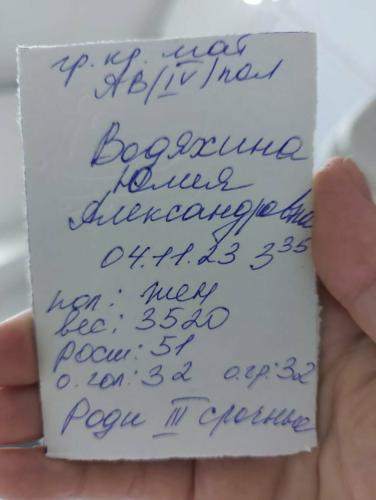 гр. кр. мат
AB(IV) пол
Водяхина
Юлия
Александровна
04.11.23 3³⁵
пол: жен
вес: 3520
рост: 51
о.гол: 32 о.гр: 32
Роды III срочные